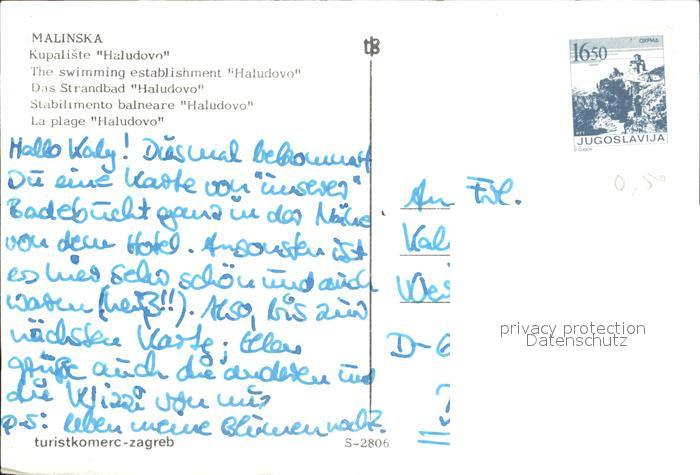 MALINSKA
Kupalište "Haludovo"
The swimming establishment "Haludovo"
Das Strandbad "Haludovo"
Stabilimento balneare "Haludovo"
La plage "Haludovo"
Hallo Kaly! Diesmal bekommst
Du eine Karte von "unserer"
Badebucht ganz in der Nähe
von dem Hotel. Ansonsten ist
es hier sehr schön und auch
warm (heiß!!). Also, bis zur
nächsten Karte;
grüße auch die anderen und
die von mir
P.S: leben meine Blumen noch?
turistkomerc-zagreb
S-2806
16.50
OХРИД
PTT
JUGOSLAVIJA
0,50
An Frl.
Kal
D-6
privacy protection
Datenschutz